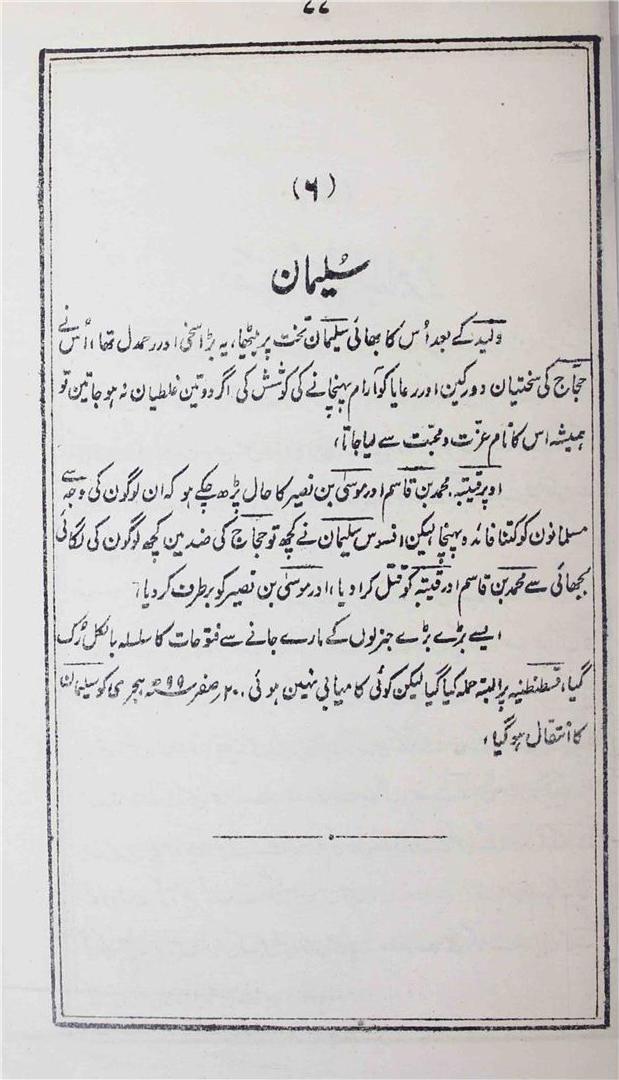 ۷۷
(۶)
سُلیمان
ولید کے بعد اُس کا بھائی سلیمان تخت پر بیٹھا، یہ بڑا سخی اور رحمدل تھا، اُس نے
حجاج کی سختیان دور کین اور رعایا کو آرام پہنچانے کی کوشش کی اگر دو تین غلطیان نہ ہو جاتین تو
ہمیشہ اس کا نام عزّت و محبّت سے لیا جاتا،
اوپر قتیبہ محمد بن قاسم اور موسیٰ بن نصیر کا حال پڑھ چکے ہو کہ ان لوگون کی وجہ سے
مسلمانون کو کتنا فائدہ پہنچا لیکن افسوس سلیمان نے کچھ تو حجاج کی ضد مین کچھ لوگون کی لگائی
بجھائی سے محمد بن قاسم اور قتیبہ کو قتل کرا دیا، اور موسیٰ بن نصیر کو برطرف کر دیا،
ایسے بڑے بڑے جنرلون کے مارے جانے سے فتوحات کا سلسلہ بالکل رُک
گیا، قسطنطنیہ پر البتہ حملہ کیا گیا لیکن کوئی کامیابی نہین ہوئی ۲۰ صفر ۹۹ ہجری کو سلیمان
کا انتقال ہو گیا،